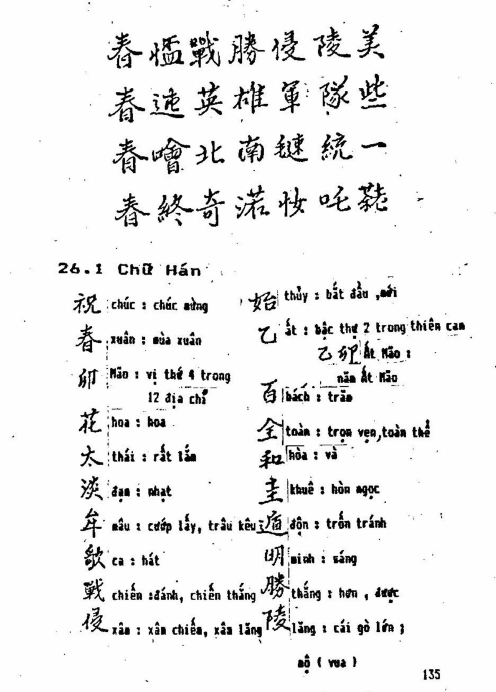 春 慍 戰 勝 侵 陵 美
春 迚 英 雄 軍 隊 些
春 噲 北 南 縺 統 一
春 終 奇 渃 妆 吒
26.1 Chữ Hán
祝 chúc : chúc mừng
春 xuân : mùa xuân
卯 Mão : vị thứ 4 trong
12 địa chỉ
花 hoa : hoa
太 thái : rất lắm
淡 đạm : nhạt
牟 mâu : cướp lấy, trâu kêu
歌 ca : hát
戰 chiến : đánh, chiến thắng
侵 xâm : xâm chiếm, xâm lăng
始 thủy : bắt đầu , mới
乙 ất : bậc thứ 2 trong thiên can
乙 卯 Ất Mão :
năm Ất Mão
百 bách : trăm
全 toàn : trọn vẹn, toàn thể
和 hòa : và
圭 khuê : hòn ngọc
遁 độn : trốn tránh
明 minh : sáng
勝 thắng : hơn , được
陵 lăng : cái gò lớn ;
mộ ( vua )
135